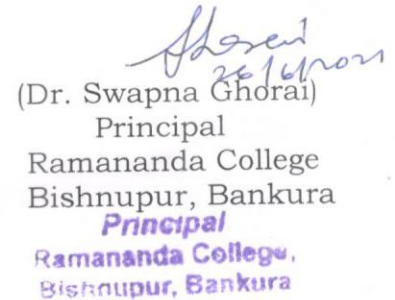 Ghorai
26/6/2021
(Dr. Swapna Ghorai)
Principal
Ramananda College
Bishnupur, Bankura
Principal
Ramananda College,
Bishnupur, Bankura